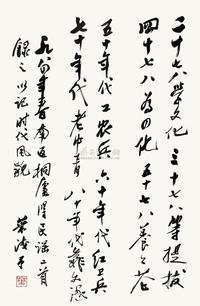 二十七八学文化 三十七八等提拔
四十七八为四化 五十七八养养花
五十年代工农兵 六十年代红卫兵
七十年代老中青 八十年代文
年春南返桐庐得民谣二首
録之以记时代风貌 葉浅予